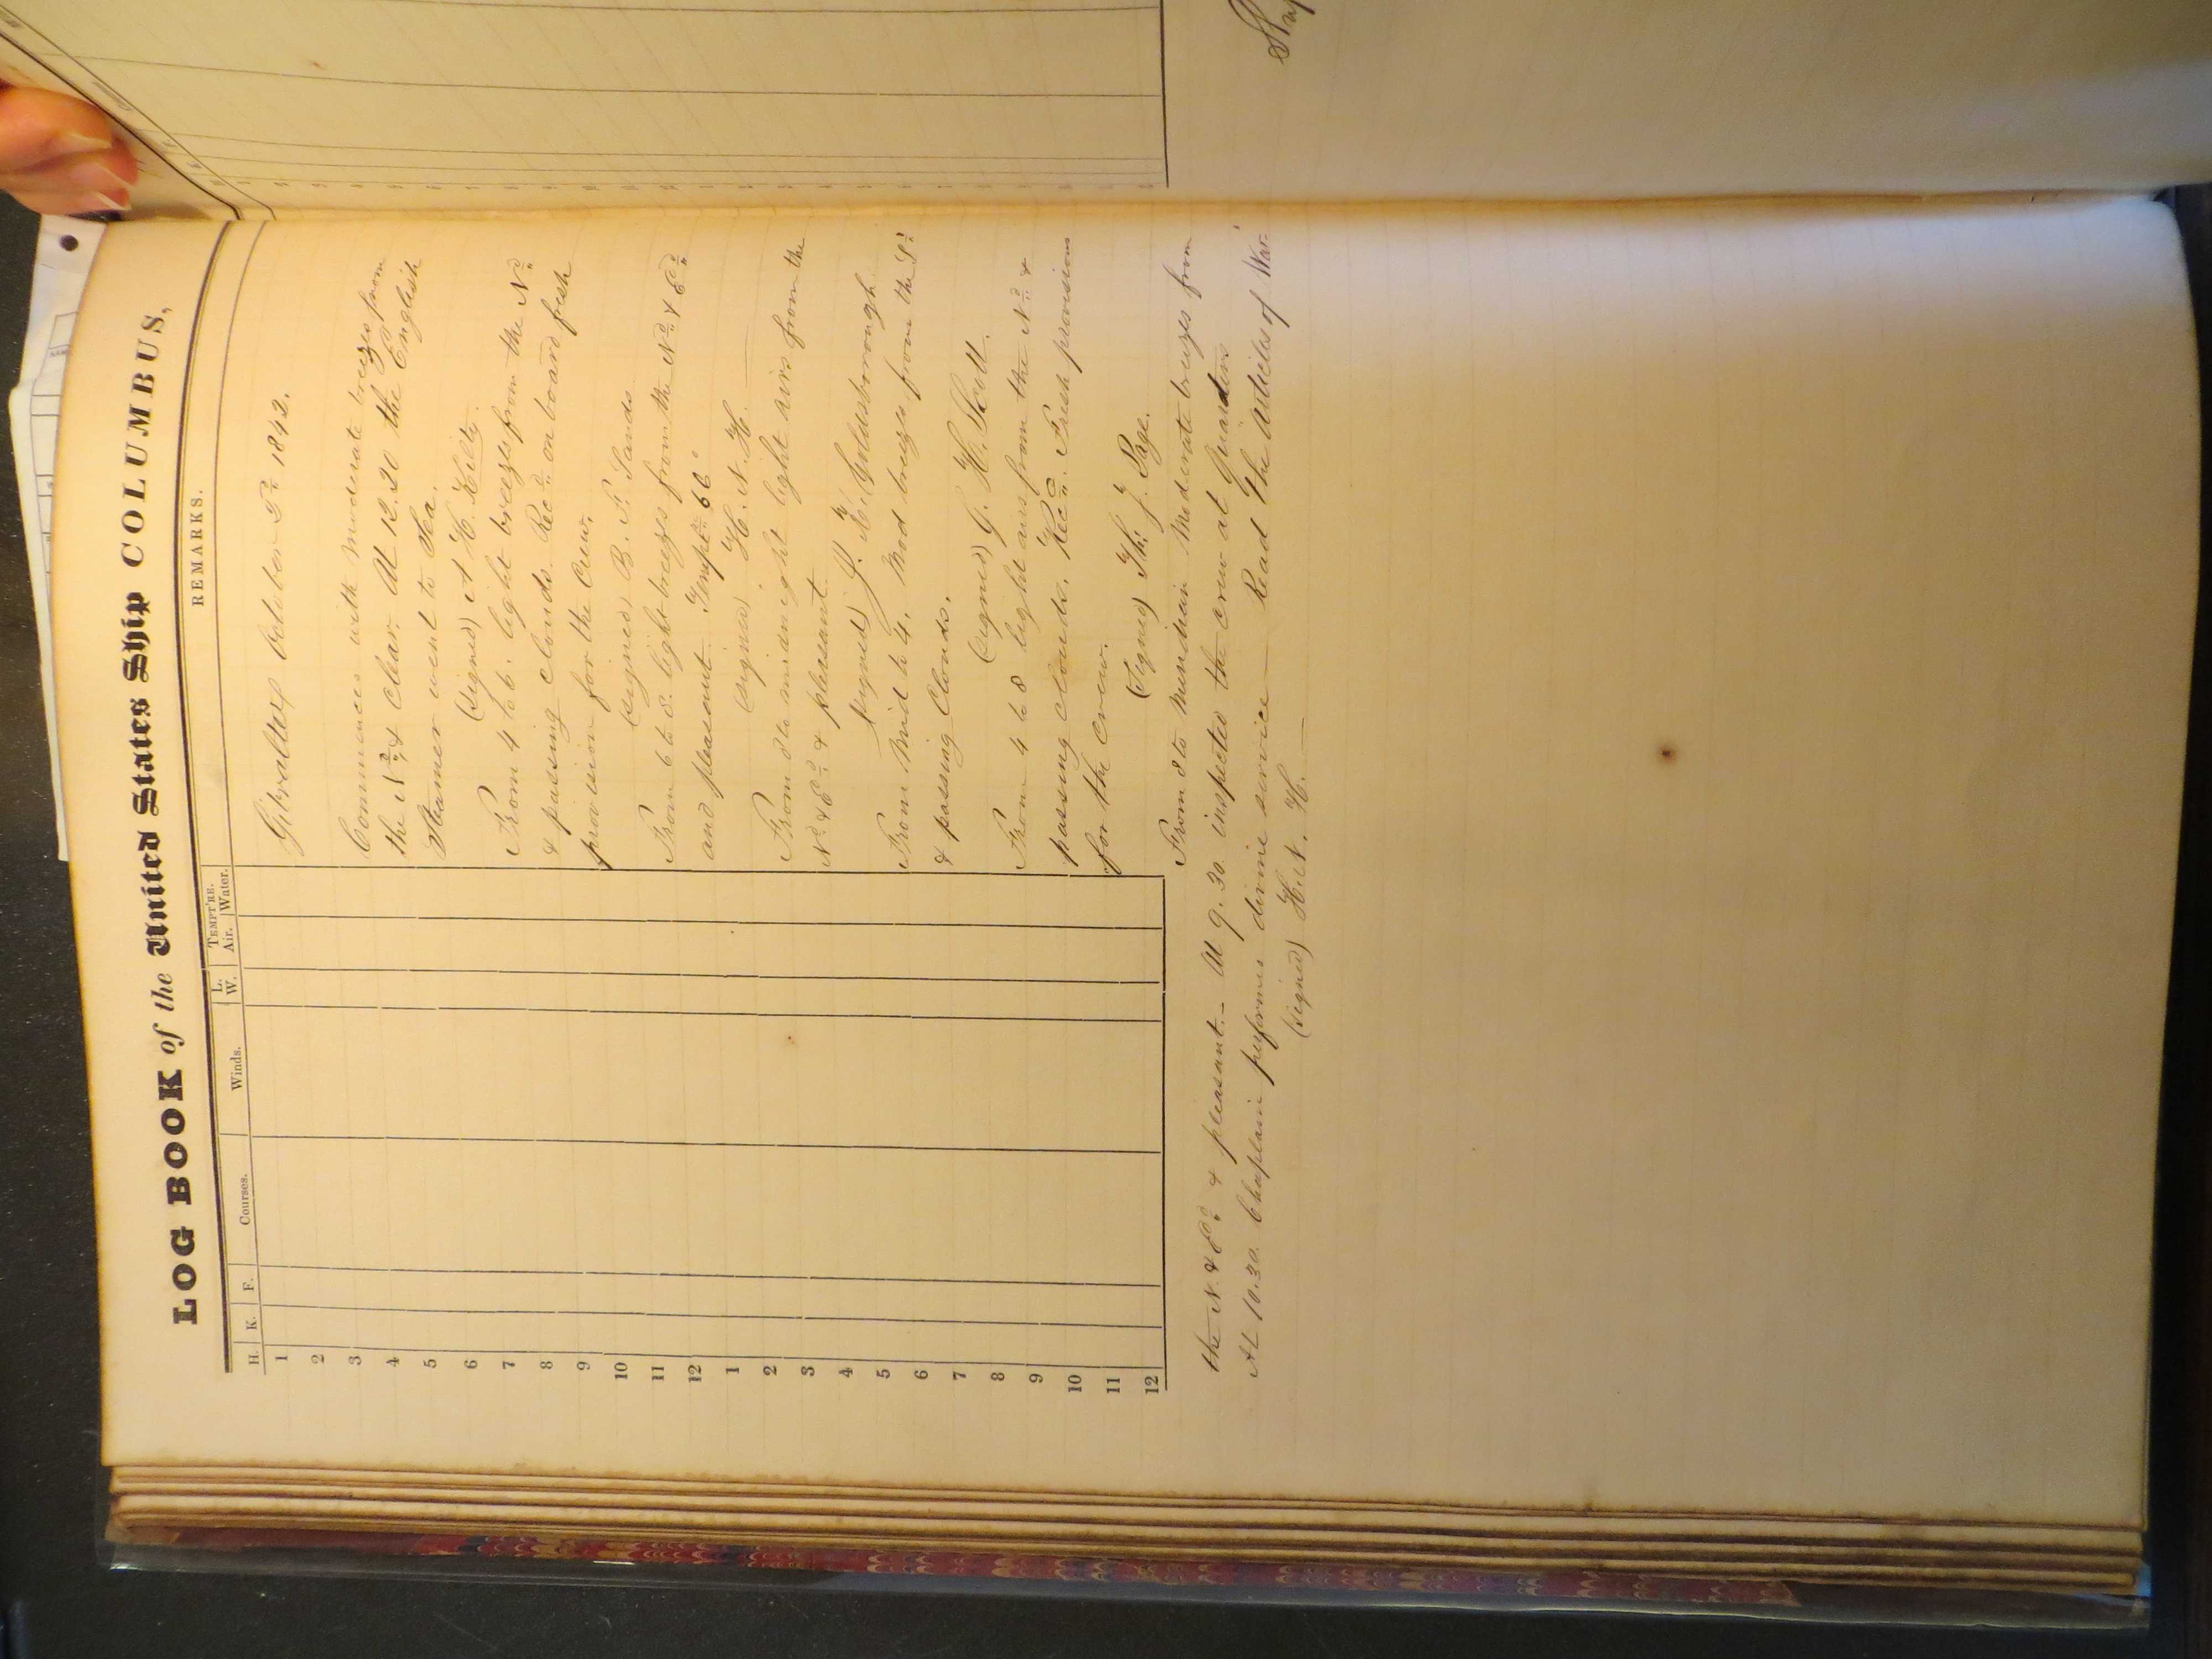 LOG BOOK of the United States Ship COLUMBUS,
H. K. F. Courses. Winds. L. W. TEMPT'RE. Air. Water. REMARKS.
1
2
3
4
5
6
7
8
9
10
11
12
1
2
3
4
5
6
7
8
9
10
11
12
Gibraltar October 2d 1842.
Commences with moderate breezes from
the Nd & clear. At 12.30 the English
Steamer went to Sea.
(signed) A H. Kilty.
From 4 to 6. light breezes from the Nd
& passing clouds. Recd on board fresh
provision for the Crew.
(signed) B. F. Sands
From 6 to 8. light breezes from the Nd & Ed
and pleasant. Tempt 66°
(signed) H. N. H.
From 8 to midnight light airs from the
Nd & Ed & pleasant
(signed) J. R. Goldsborough
From Mid to 4. Mod breezes from the Sd
& passing Clouds.
(signed) G. H. Scott.
From 4 to 8 light airs from the Nd &
passing clouds. Recd Fresh provisions
for the crew.
(signed) Th: J. Page.
From 8 to Meridian Moderate breezes from
the N & Ed & pleasant. — At 9.30 inspected the crew at Quarters
At 10.30. Chaplain performed divine service — Read the Articles of War
(signed) H. N. H. —